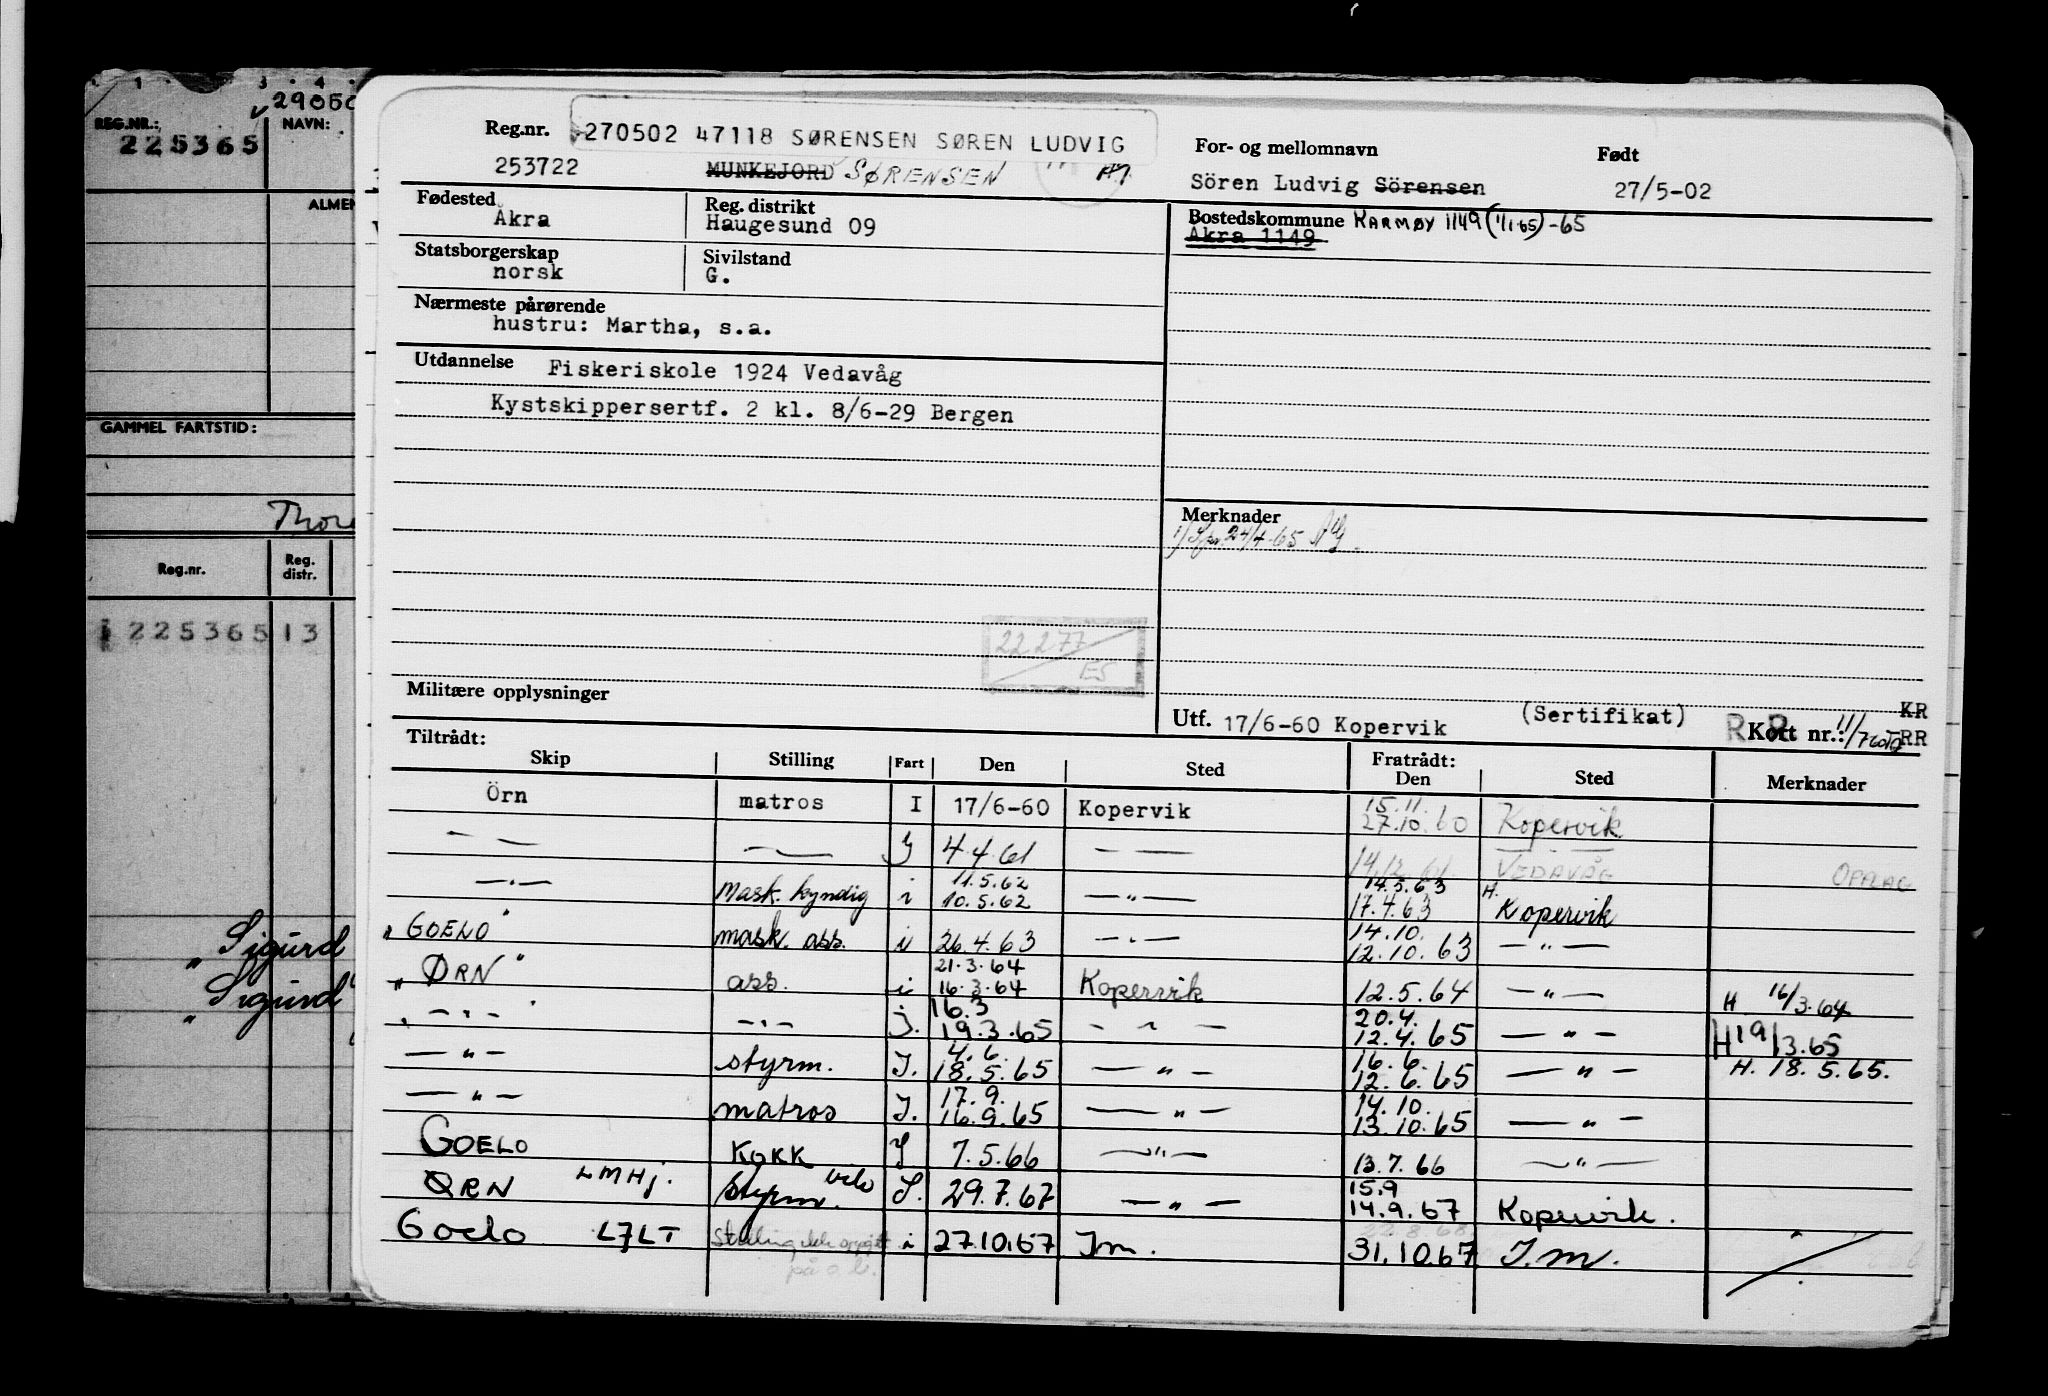 3 4
29050
REG.NR.: NAVN:
225365
ALMEN
GAMMEL FARTSTID:
Thore
Reg.nr. Reg. distr.
225365 13
„ Sigurd
„ Sigurd
Reg.nr. 270502 47118 SØRENSEN SØREN LUDVIG For- og mellomnavn Født
253722 MUNKEJORD SØRENSEN Sören Ludvig Sörensen 27/5-02
Fødested Reg. distrikt Bostedskommune KARMØY 1149 (1/1-65)-65
Åkra Haugesund 09 Åkra 1149
Statsborgerskap Sivilstand
norsk G.
Nærmeste pårørende
hustru: Martha, s.a.
Utdannelse Fiskeriskole 1924 Vedavåg
Kystskippersertf. 2 kl. 8/6-29 Bergen
Merknader
24/4-65
22 2 77
ES
Militære opplysninger
Utf. 17/6-60 Kopervik (Sertifikat) KR
R Kort nr.: RR
Tiltrådt: Fratrådt:
Skip Stilling Fart Den Sted Den Sted Merknader
Örn matros I 17/6-60 Kopervik 15.11. 27.10.60 Kopervik
— — — — 4.4.61 — — 14.12.61. VEDAVÅG OPPLAG
— " — Mask. kyndig i 11.5.62 10.5.62 — " — 14.5.63 17.4.63 H. Kopervik
„ GOELO " mask. ass. i 26.4.63 — " — 14.10. 12.10.63 — " —
„ ØRN " ass. i 21.3.64 16.3.64 Kopervik 12.5.64 — " — H 16/3.64
„ — " — — " — j. 16.3 19.3.65 — " — 20.4. 12.4.65 — " — H 19/3.65
— " — styrm. I. 4.6. 18.5.65 — " — 16.6. 12.6.65 — " — H. 18.5.65.
— " — matros I. 17.9. 16.9.65 — " — 14.10. 13.10.65 — " —
GOELO KOKK I 7.5.66 — " — 13.7.66 — " —
ØRN LMHj. styrm. I. 29.7.67 — " — 15.9 14.9.67 Kopervik.
Goelo LJLT Stilling ikke oppgitt i 27.10.67 I m. 31.10.67 I. m.